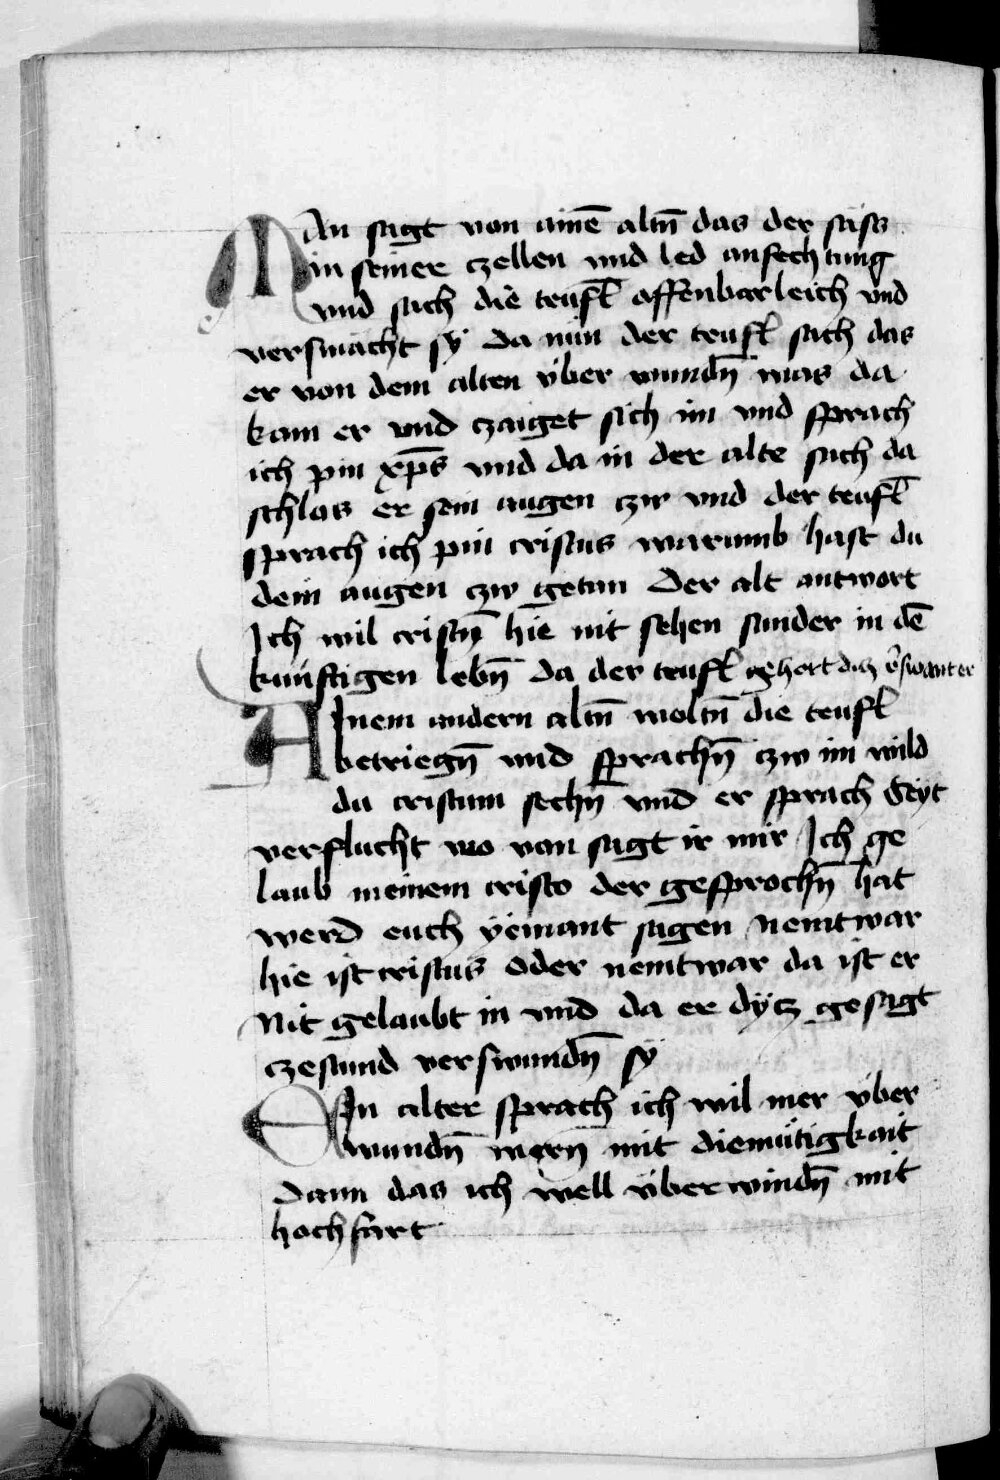 MAn sagt von aine͂ altn̄ das der säss
in seiner czellen vnd led anfechtung
vnd sach die teufl̄ affenbarleich vnd
versmächt sÿ da nün der teufl̄ sach das
er von dem alten v̈ber wundn̄ was da
kam er vnd czaiget sich im vnd sprach
ich pin xp̄s vnd da in der alte sach da
schlos er sein augen czw vnd der teufl̄
sprach ich pin cristus warumb hast du
dein augen czw getan Der alt antwort
Ich wil cristū hie nit sehen sunder in de͂
künftigen lebn̄ da der teufl̄ gehort daz v̄swant er
AInem andern altn̄ woltn̄ die teufl̄
betriegn̄ vnd sprachn̄ czw im wild
du cristum sechn̄ vnd er sprach Seÿt
verflucht wo von sagt ir mir Ich ge
laub meinem cristo der gesprochn̄ hat
werd euch ÿemant sagen nemt war
hie ist cristus oder nemt war da ist er
Nit gelaubt in vnd da er dÿtz gesagt
czestund verswundn̄ sÿ
EIn alter sprach ich wil mer v̈ber
wundn̄ wern̄ mit diemütigkait
Dann das ich well v̈berwindn̄ mit
hochfart